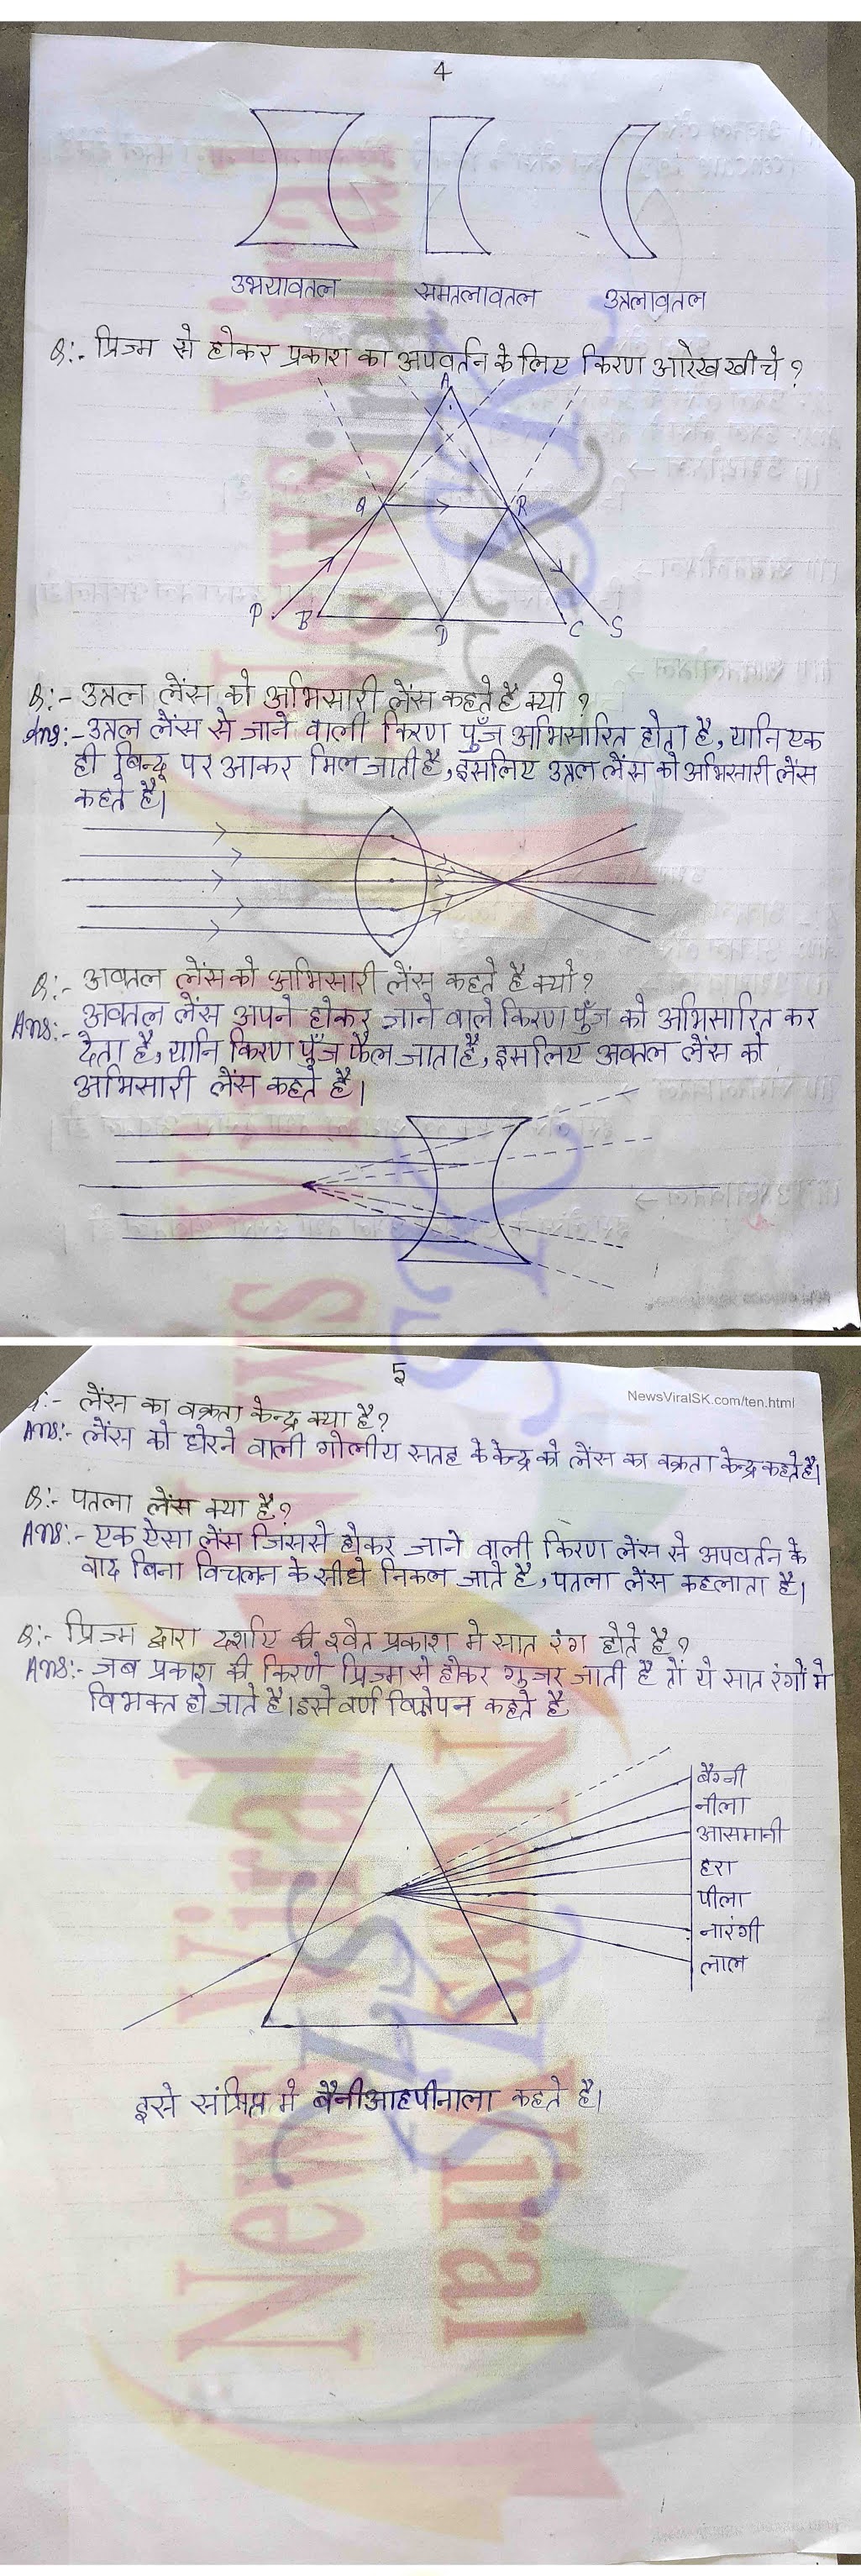 4
उभयावतल समतलावतल उत्तलावतल
Q:- प्रिज्म से होकर प्रकाश का अपवर्तन के लिए किरण आरेख खीचे ?
A
Q R
P B D C S
Q:- उत्तल लेंस को अभिसारी लेंस कहते है क्यो ?
Ans:- उत्तल लेंस से जाने वाली किरण पुँज अभिसारित होता है, यानि एक
ही बिन्दू पर आकर मिल जाती है, इसलिए उत्तल लेंस को अभिसारी लेंस
कहते है।
Q:- अवतल लेंस को अभिसारी लेंस कहते है क्यो ?
Ans:- अवतल लेंस अपने होकर जाने वाले किरण पुँज को अभिसारित कर
देता है, यानि किरण पुँज फैल जाता है, इसलिए अवतल लेंस को
अभिसारी लेंस कहते है।
5
NewsViralSK.com/ten.html
Q:- लेंस का वक्रता केन्द्र क्या है ?
Ans:- लेंस को घेरने वाली गोलीय सतह के केन्द्र को लेंस का वक्रता केन्द्र कहते है।
Q:- पतला लेंस क्या है ?
Ans:- एक ऐसा लेंस जिससे होकर जाने वाली किरण लेंस से अपवर्तन के
बाद बिना विचलन के सीधे निकल जाते है, पतला लेंस कहलाता है।
Q:- प्रिज्म द्वारा दर्शाए की श्वेत प्रकाश मे सात रंग होते है ?
Ans:- जब प्रकाश की किरणे प्रिज्म से होकर गुजर जाती है तो ये सात रंगों मे
विभक्त हो जाते है। इसे वर्ण विक्षेपन कहते है
बैंगनी
नीला
आसमानी
हरा
पीला
नारंगी
लाल
इसे संक्षिप्त मे बैनीआहपीनाला कहते है।
News Viral
News Viral
SK
News Viral
News Viral
SK